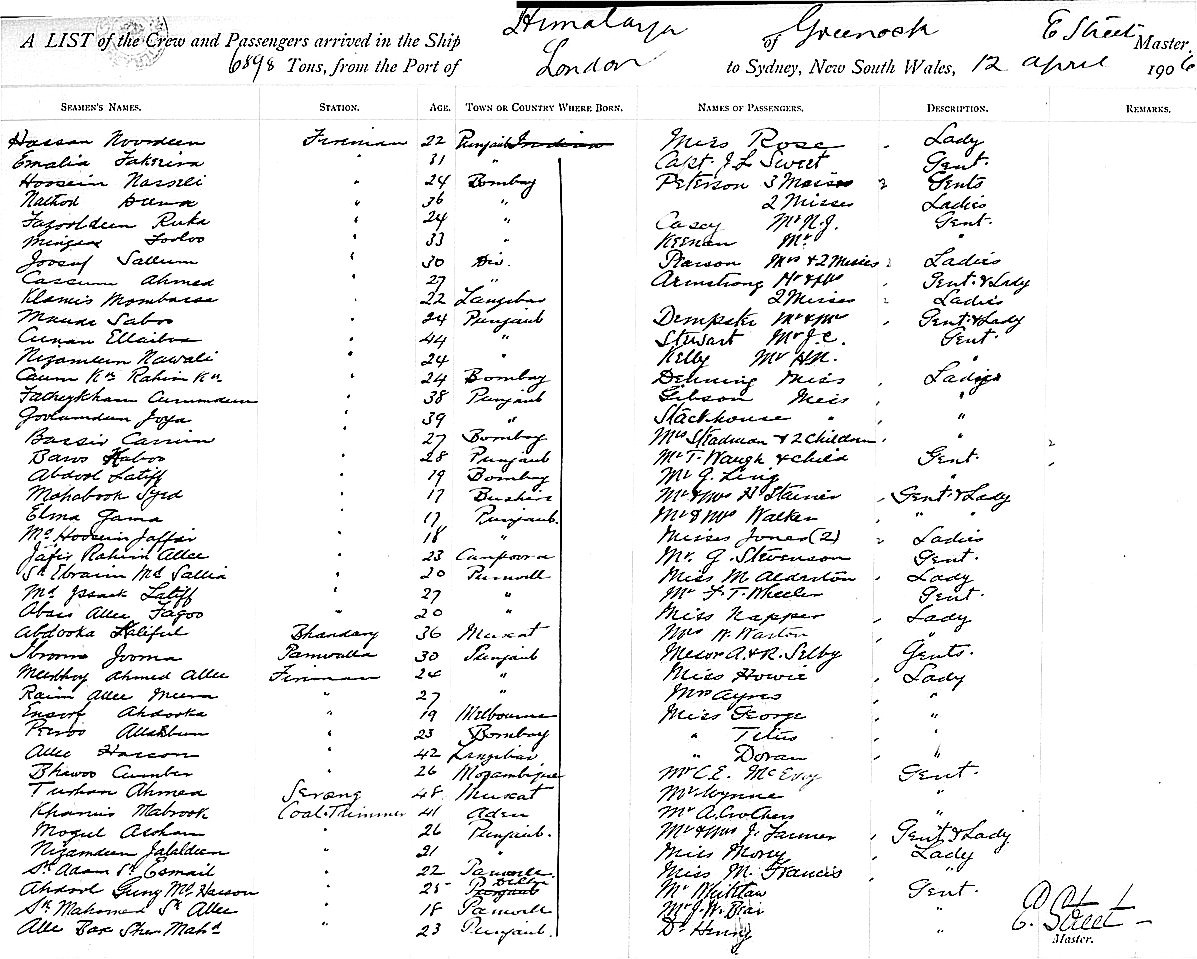 A LIST of the Crew and Passengers arrived in the Ship Himalaya of Greenock E Street Master,
6898 Tons, from the Port of London to Sydney, New South Wales, 12 April 1906
SEAMEN'S NAMES. STATION. AGE. TOWN OR COUNTRY WHERE BORN. NAMES OF PASSENGERS. DESCRIPTION. REMARKS.
Hassan Noordeen Fireman 22 Punjaub Miss Rose Lady
31 " Capt. J. L. Sweet Gent.
Hoosein " 24 Bombay Peterson 3 Gents
Nathod " 36 " 2 Misses Ladies
" 24 " Casey Mr N.J. Gent.
" 33 " Keenan Mr "
Joosuf Sallum " 30 Diu. Pearson Mrs & 2 Misses Ladies
Cassum Ahmed " 27 " Armstrong Mr & Mrs Gent. & Lady
Klamis Mombassa " 22 Zanzibar 2 Misses Ladies
" 24 Punjaub Dempster Mr & Mrs Gent. & Lady
" 44 " Stewart Mr J.C. Gent.
Nizamdeen Nawali " 24 " Kelly Mr "
Caum Kn Rahim Kn " 24 Bombay Denning Miss Ladies
" 38 Punjaub Gibson Miss "
" 39 " Stackhouse " "
Cassim " 27 Bombay Mrs Steadman & 2 Children "
" 28 Punjaub Mr T. Waugh & child Gent.
Abdool Latiff " 19 Bombay Mr G. Ling "
Mahabook Syed " 17 Bushire Mr & Mrs H Stainer Gent & Lady
Elma Gama " 17 Punjaub. Mr & Mrs Walker " "
Md Hoosein Jaffar " 18 " Misses Jones (2) Ladies
Jafir Rahim Allee " 23 Mr. G. Stevenson Gent.
Sk Ebraim Md Sallia " 20 Miss M Alderston Lady
Md Issack Latiff " 27 " Mr F. T. Wheeler Gent.
Abass Allee Fagoo " 20 " Miss Napper Lady
Abdooka Bhandary 36 Muscat Mrs W. Warton "
Jooma Paniwalla 30 Punjaub Messrs A. & R. Selby Gents.
Ahmed Allee Fireman 24 " Miss Howie Lady
Raim Allee " 27 " Mrs Ayres "
Ahdooka " 19 Melbourne Miss George "
" 23 Bombay " Titus "
Allee Hassan " 42 Zanzibar " Doran "
Cumber " 26 Mozambique Mr C.E. McEvoy Gent.
Ahmed Serang 48 Muscat Mr Wynne "
Khamis Mabrook Coal Trimmer 41 Aden Mr A. Crothers "
Mogul " 26 Punjaub. Mr & Mrs J. Farmer Gent & Lady
Nizamdeen Jalaldeen " 21 " Miss Money Lady
Sk Adam Sk Esmail " 22 Panwelle Miss M. Francis "
Ahdool Guny Md Hassan " 25 Delhi Mr Gent.
Sk Mahomed Sk Allee " 18 Panwelle Mr J. W. "
Alle Bax Sher Mahd " 23 Punjaub. Dr Henry "
E. Street
Master.